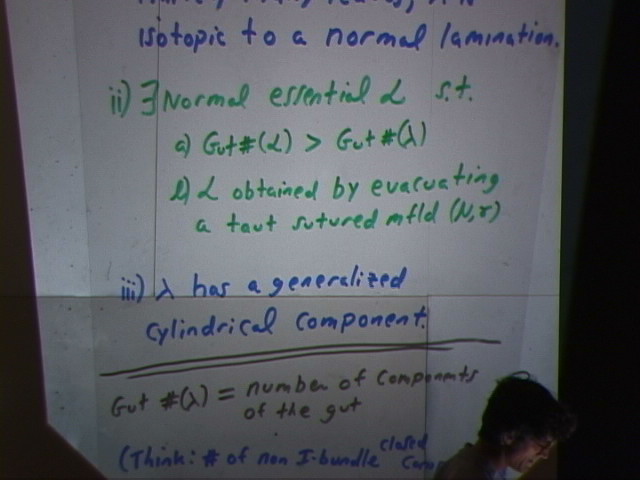 isotopic to a normal lamination.
ii) ∃ Normal essential L s.t.
a) Gut#(L) > Gut#(λ)
b) L obtained by evacuating
a taut sutured mfld (N,γ)
iii) λ has a generalized
cylindrical component.
Gut #(λ) = number of components
of the gut
(Think: # of non I-bundle closed